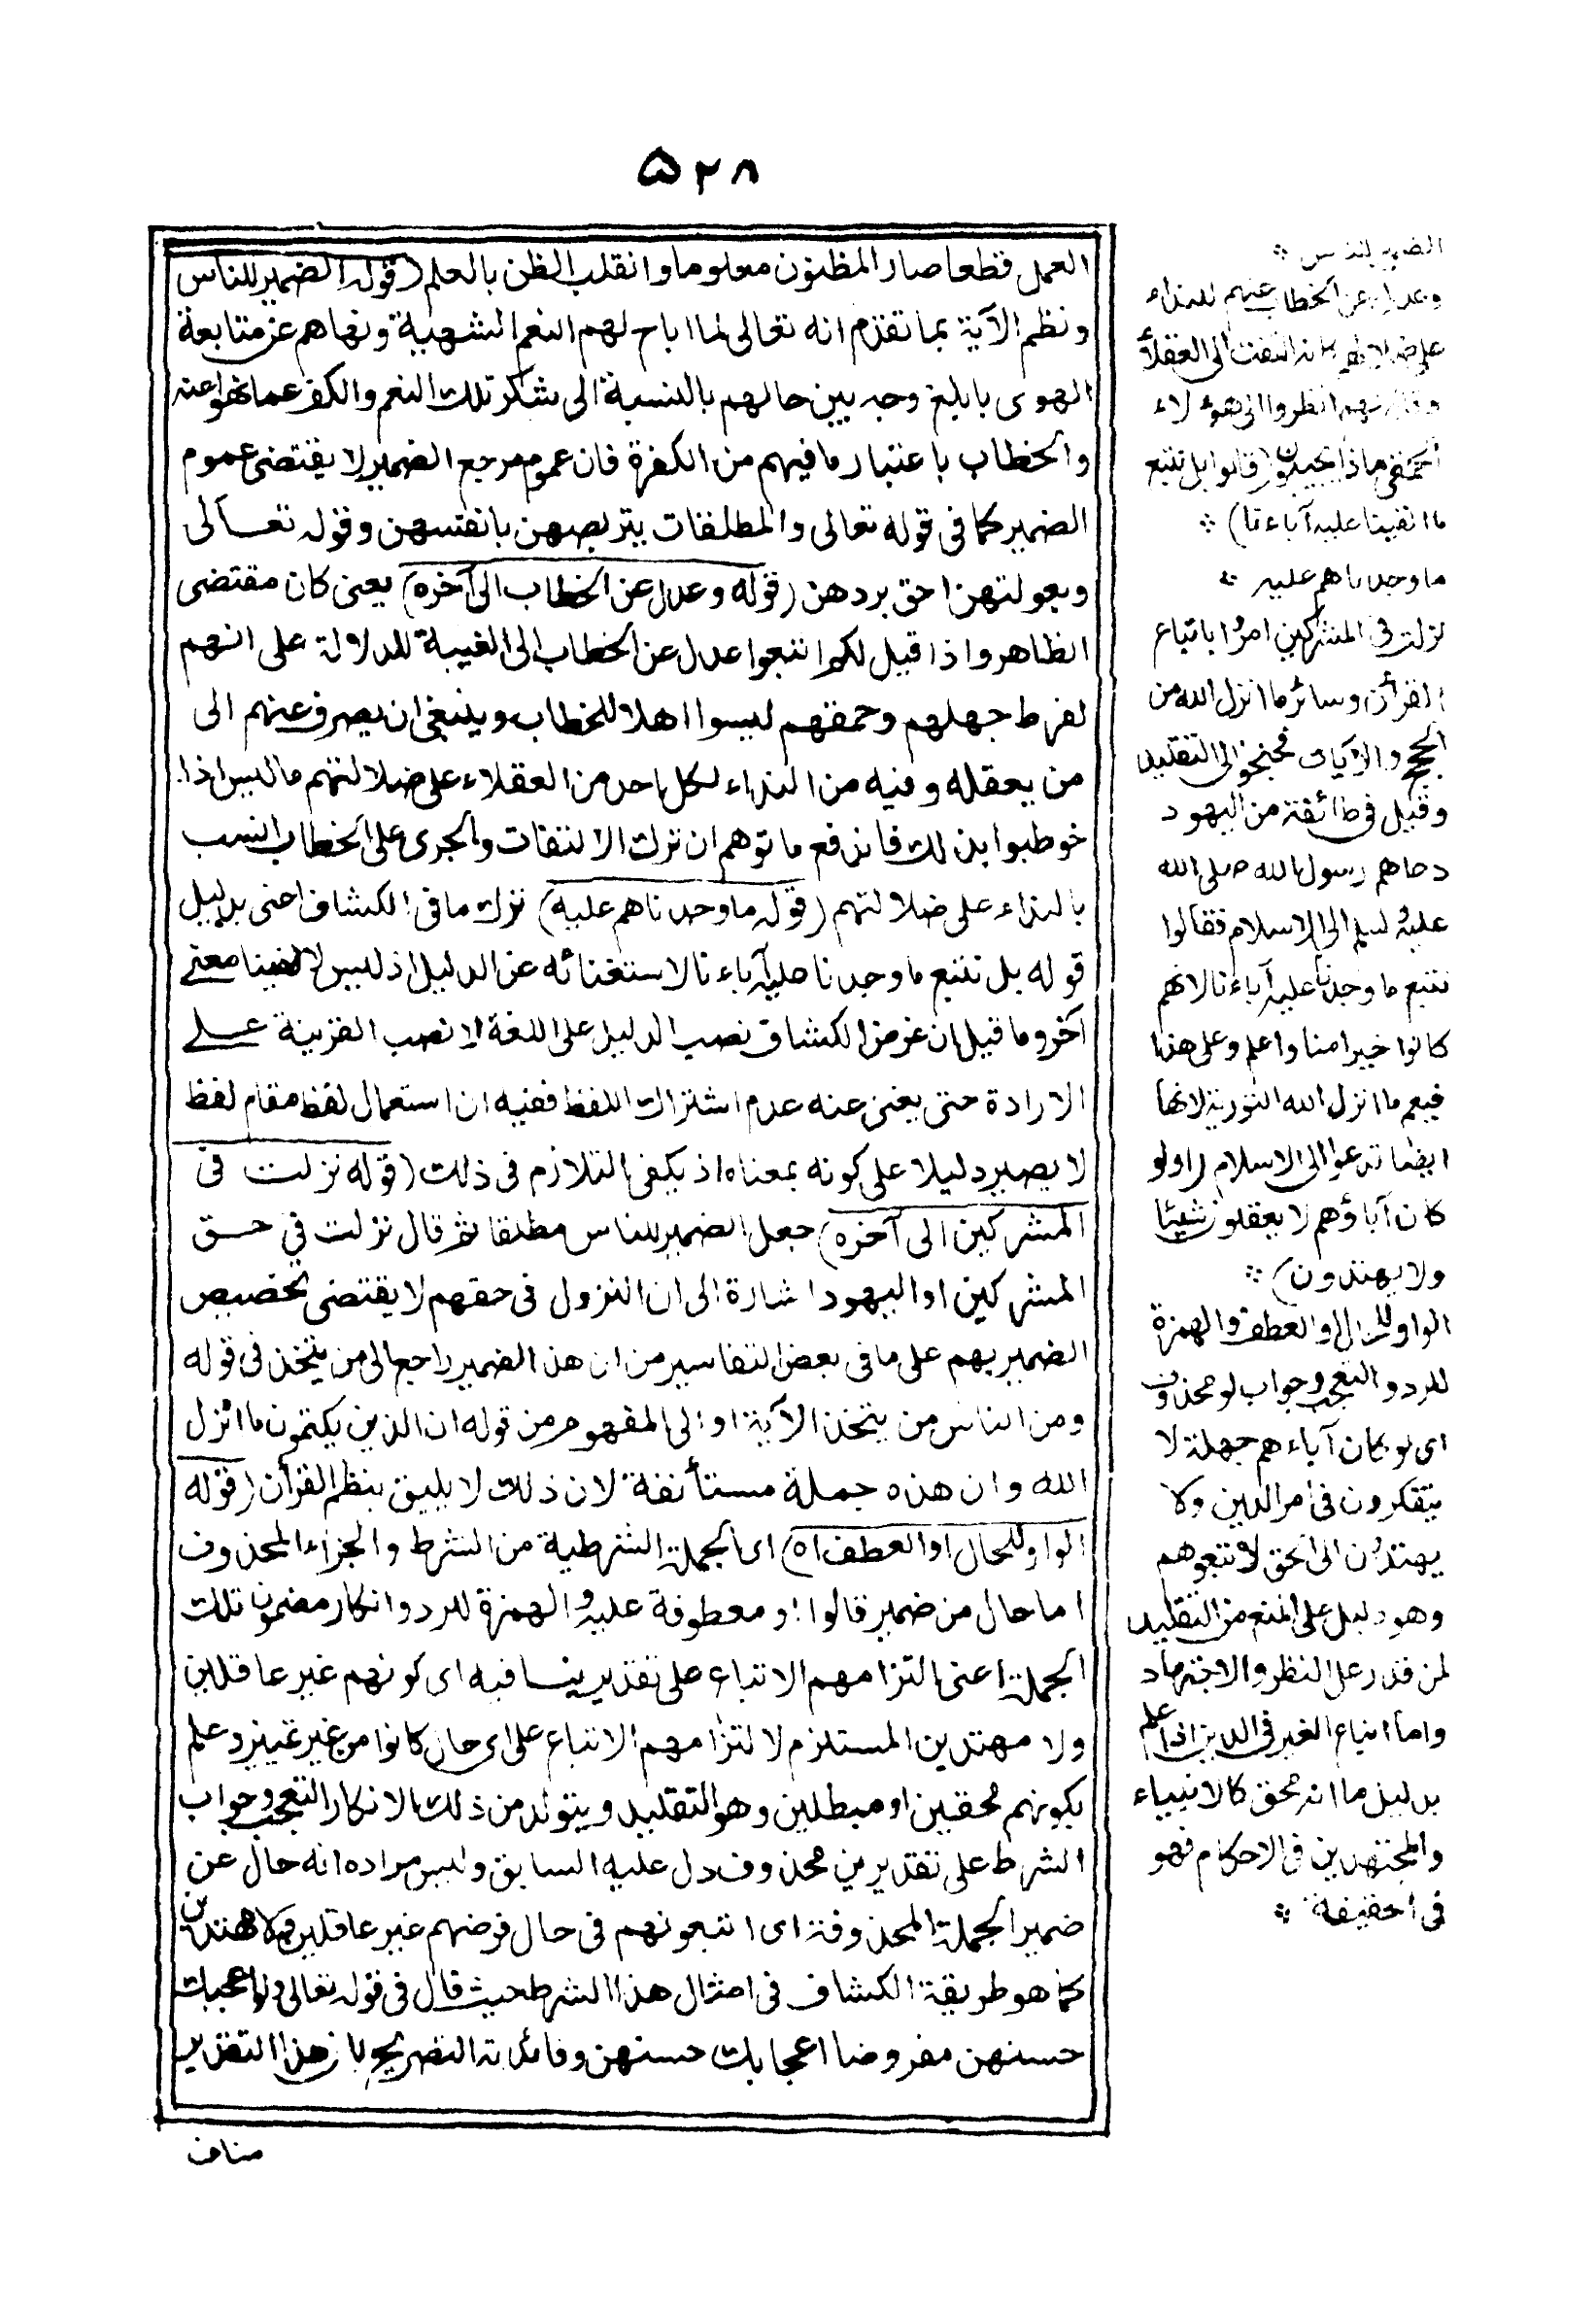 ٥٢٨
العمل قطعا صار المظنون معلوما وانقلب الظن بالعلم (قوله الضمير للناس
ونظم الآية بما تقدم انه تعالى لما اباح لهم النعم الشهية ونهاهم عن متابعة
الهوى بابلغ وجه بين حالهم بالنسبة الى شكر تلك النعم والكف عما نهوا عنه
والخطاب باعتبار ما فيهم من الكفرة فان عموم مرجع الضمير لا يقتضى عموم
الضمير كما فى قوله تعالى والمطلقات يتربصهن بانفسهن وقوله تعالى
وبعولتهن احق بردهن (قوله وعدل عن الخطاب الى آخره) يعنى كان مقتضى
الظاهر واذا قيل لكم اتبعوا عدل عن الخطاب الى الغيبة للدلالة على انهم
لفرط جهلهم وحمقهم ليسوا اهلا للخطاب وينبغى ان يصرف عنهم الى
من يعقله وفيه من النداء لكل احد من العقلاء على ضلالتهم ما ليس اذا
خوطبوا بذلك فاندفع ما توهم ان ترك الالتفات والجرى على الخطاب انسب
بالنداء على ضلالتهم (قوله ما وجدناهم عليه) ترك ما فى الكشاف اعنى بدليل
قوله بل نتبع ما وجدنا عليه آباءنا لاستغنائه عن الدليل اذ ليس لالفينا معنى
آخر وما قيل ان غرض الكشاف نصب الدليل على اللغة لا نصب القرينة على
الارادة حتى يغنى عنه عدم اشتراك اللفظ ففيه ان استعمال لفظ مقام لفظ
لا يصير دليلا على كونه بمعناه اذ يكفى التلازم فى ذلك (قوله نزلت فى
المشركين الى آخره) جعل الضمير للناس مطلقا ثم قال نزلت في حق
المشركين او اليهود اشارة الى ان النزول فى حقهم لا يقتضى تخصيص
الضمير بهم على ما فى بعض التفاسير من ان هذ الضمير راجع الى من يتخذ فى قوله
ومن الناس من يتخذ الآية او الى المفهوم من قوله ان الذين يكتمون ما انزل
الله وان هذه جملة مستأنفة لان ذلك لا يليق بنظم القرآن (قوله
الواو للحال او العطف اه) اى الجملة الشرطية من الشرط والجزاء المحذوف
اما حال من ضمير قالوا او معطوفة عليه والهمزة للرد وانكار مضمون تلك
الجملة اعنى التزامهم الاتباع على تقدير ينافيه اى كونهم غير عاقلين
ولا مهتدين المستلزم لالتزامهم الاتباع على اى حال كانوا من غير تمييز وعلم
بكونهم محقين او مبطلين وهو التقليد ويتولد من ذلك الانكار التعجب وجواب
الشرط على تقديرين محذوف دل عليه السابق وليس مراده انه حال عن
ضمير الجملة المحذوفة اى اتتبعونهم فى حال فرضهم غير عاقلين ولا مهتدين
كما هو طريقة الكشاف فى امثال هذا الشرط حيث قال فى قوله تعالى ولو اعجبك
حسنهن مفروضا اعجابك حسنهن وفائدته التصريح بان هذا التقدير
مناف
الضمير للناس
وعدل عن الخطاب عنهم للنداء
على ضلالتهم كانه التفت الى العقلاء
وقال لهم انظروا الى هؤلاء
الحمقى ماذا يجيبون (قالوا بل نتبع
ما الفينا عليه آباءنا)
ما وجدناهم عليه
نزلت فى المشركين امروا باتباع
القرآن وسائر ما انزل الله من
الحجج والآيات فجنحوا الى التقليد
وقيل فى طائفة من اليهود
دعاهم رسول الله صلى الله
عليه وسلم الى الاسلام فقالوا
نتبع ما وجدنا عليه آباءنا لانهم
كانوا خيرا منا واعلم وعلى هذا
فيعم ما انزل الله التورية لانها
ايضا تدعو الى الاسلام (اولو
كان آباؤهم لا يعقلون شيئا
ولا يهتدون)
الواو للحال او العطف والهمزة
للرد والتعجب وجواب لو محذوف
اى لو كان آباءهم جهلة لا
يتفكرون فى امر الدين ولا
يهتدون الى الحق لاتبعوهم
وهو دليل على المنع من التقليد
لمن قدر على النظر والاجتهاد
واما اتباع الغير فى الدين اذا علم
بدليل ما انه محق كالانبياء
والمجتهدين فى الاحكام فهو
فى الحقيقة